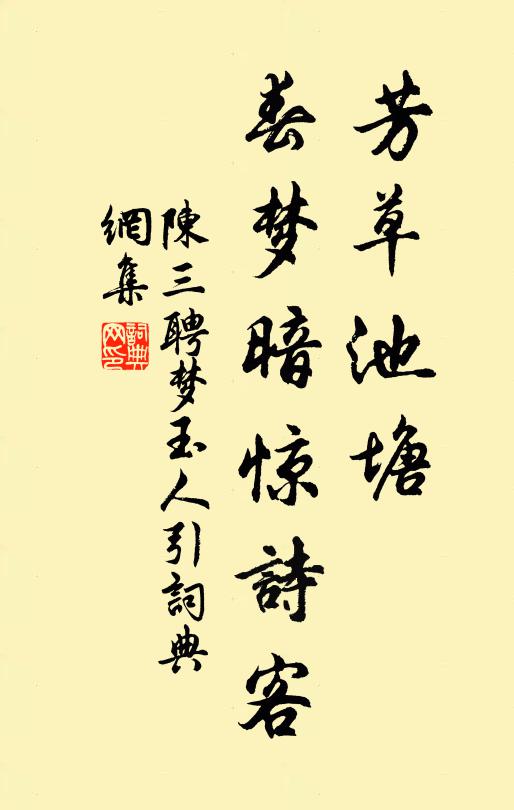 芳草池塘
春梦暗惊詩客
陳三聘梦玉人引詞典
網集
詞典
网印